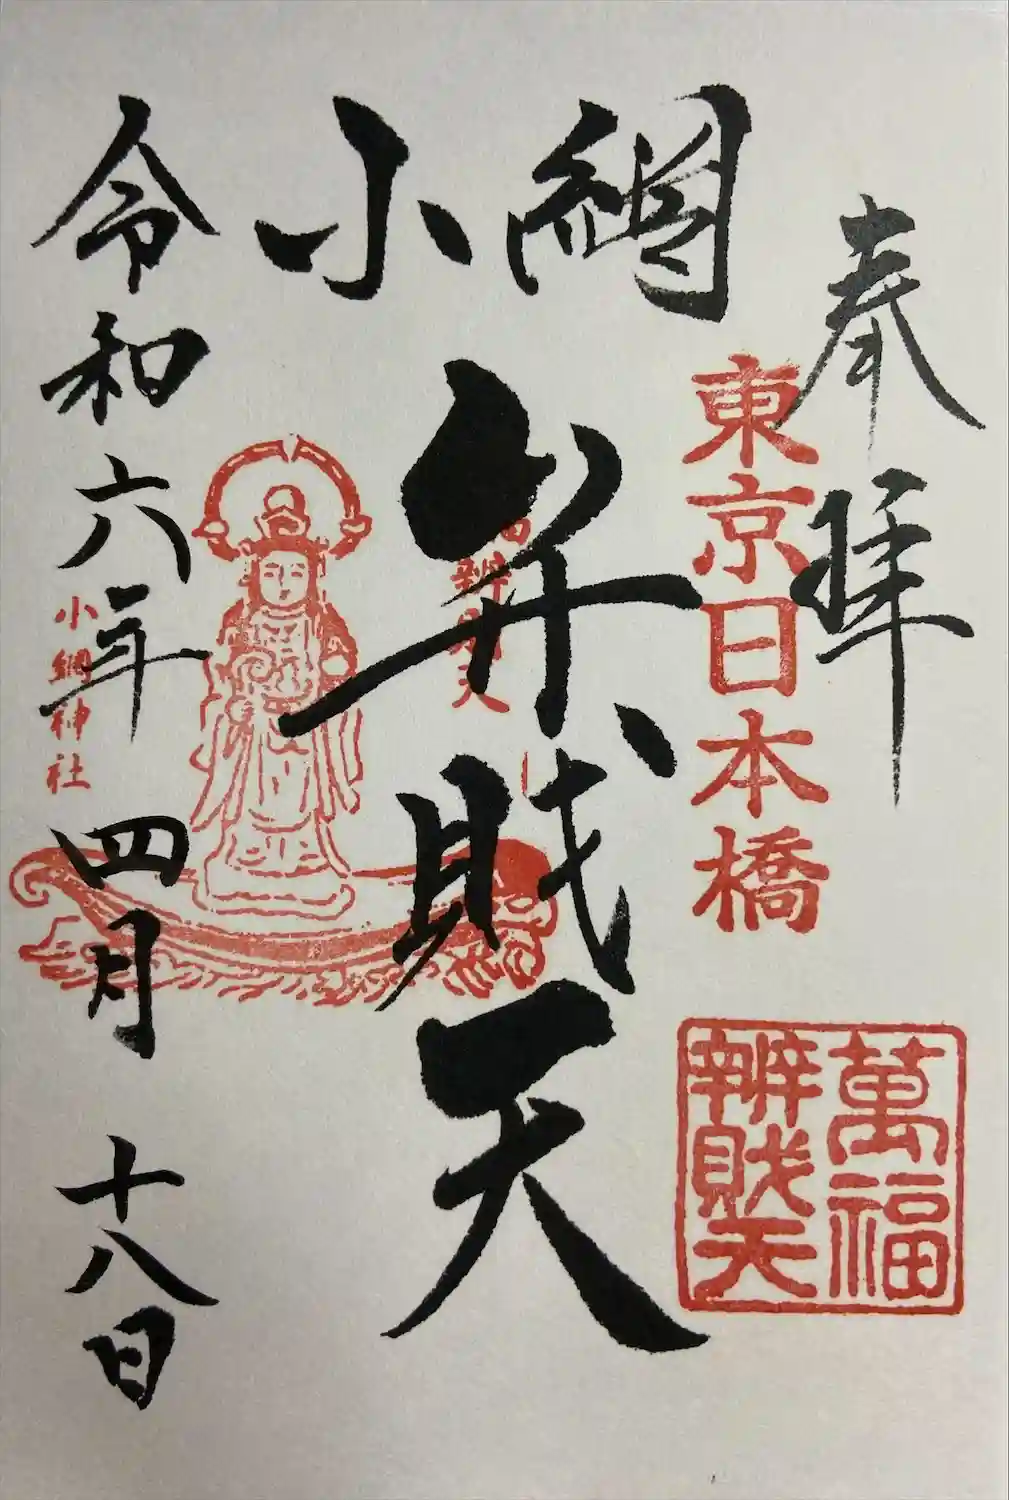 奉拝
東京日本橋
萬福
辨財天
小網
弁財天
小網神社
令和六年四月十八日